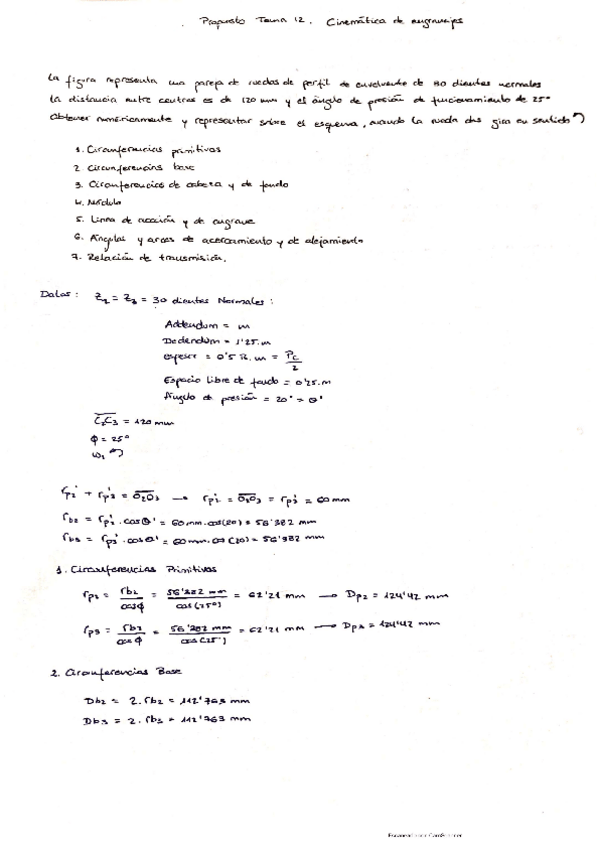 Propuesto Tema 12. Cinemática de engranajes
La figura representa una pareja de ruedas de perfil de envolvente de 30 dientes normales
la distancia entre centros es de 120 mm y el ángulo de presión de funcionamiento de 25°
Obtener numéricamente y representar sobre el esquema, cuando la rueda dos gira en sentido
1. Circunferencias primitivas
2. Circunferencias base
3. Circunferencias de cabeza y de fondo
4. Módulo
5. Línea de acción y de engrane
6. Ángulos y arcos de acercamiento y de alejamiento
7. Relación de transmisión.
Datos: Z2 = Z3 = 30 dientes Normales:
Addendum = m
Dedendum = 1'25.m
espesor = 0'5 π.m = Pc/2
Espacio libre de fondo = 0'25.m
Ángulo de presión = 20° = θ'
C2C3 = 120 mm
ϕ = 25°
ω1
rp2' + rp3' = O2O3 → rp2' = O2O3 = rp3' = 60 mm
rb2 = rp2'.cosθ' = 60 mm.cos(20) = 56'382 mm
rb3 = rp3'.cosθ' = 60 mm.cos(20) = 56'382 mm
1. Circunferencias Primitivas
rp2 = rb2/cosϕ = 56'382 mm/cos(25°) = 62'21 mm → Dp2 = 124'42 mm
rp3 = rb3/cosϕ = 56'382 mm/cos(25°) = 62'21 mm → Dp3 = 124'42 mm
2. Circunferencias Base
Db2 = 2.rb2 = 112'763 mm
Db3 = 2.rb3 = 112'763 mm
Escaneado con CamScanner